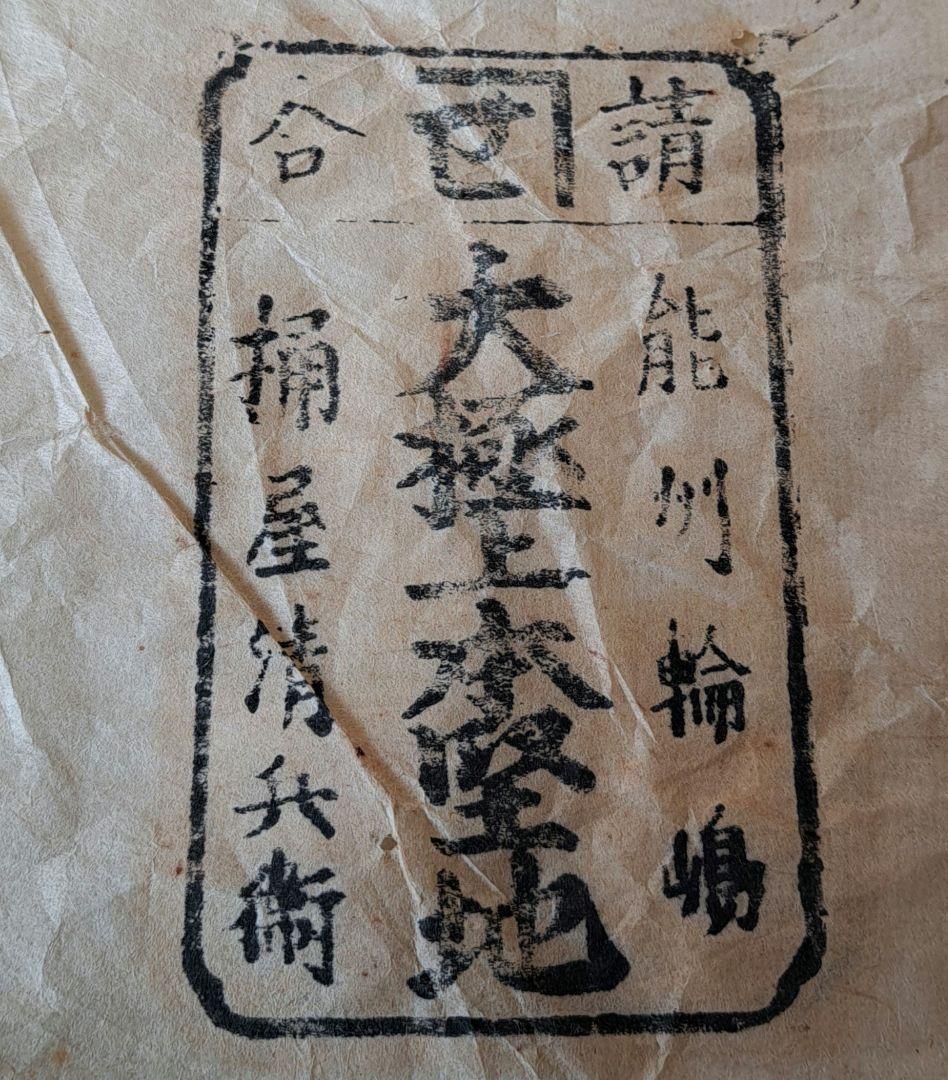 請合
能州輪嶋
大極上本堅地
桶屋清兵衛